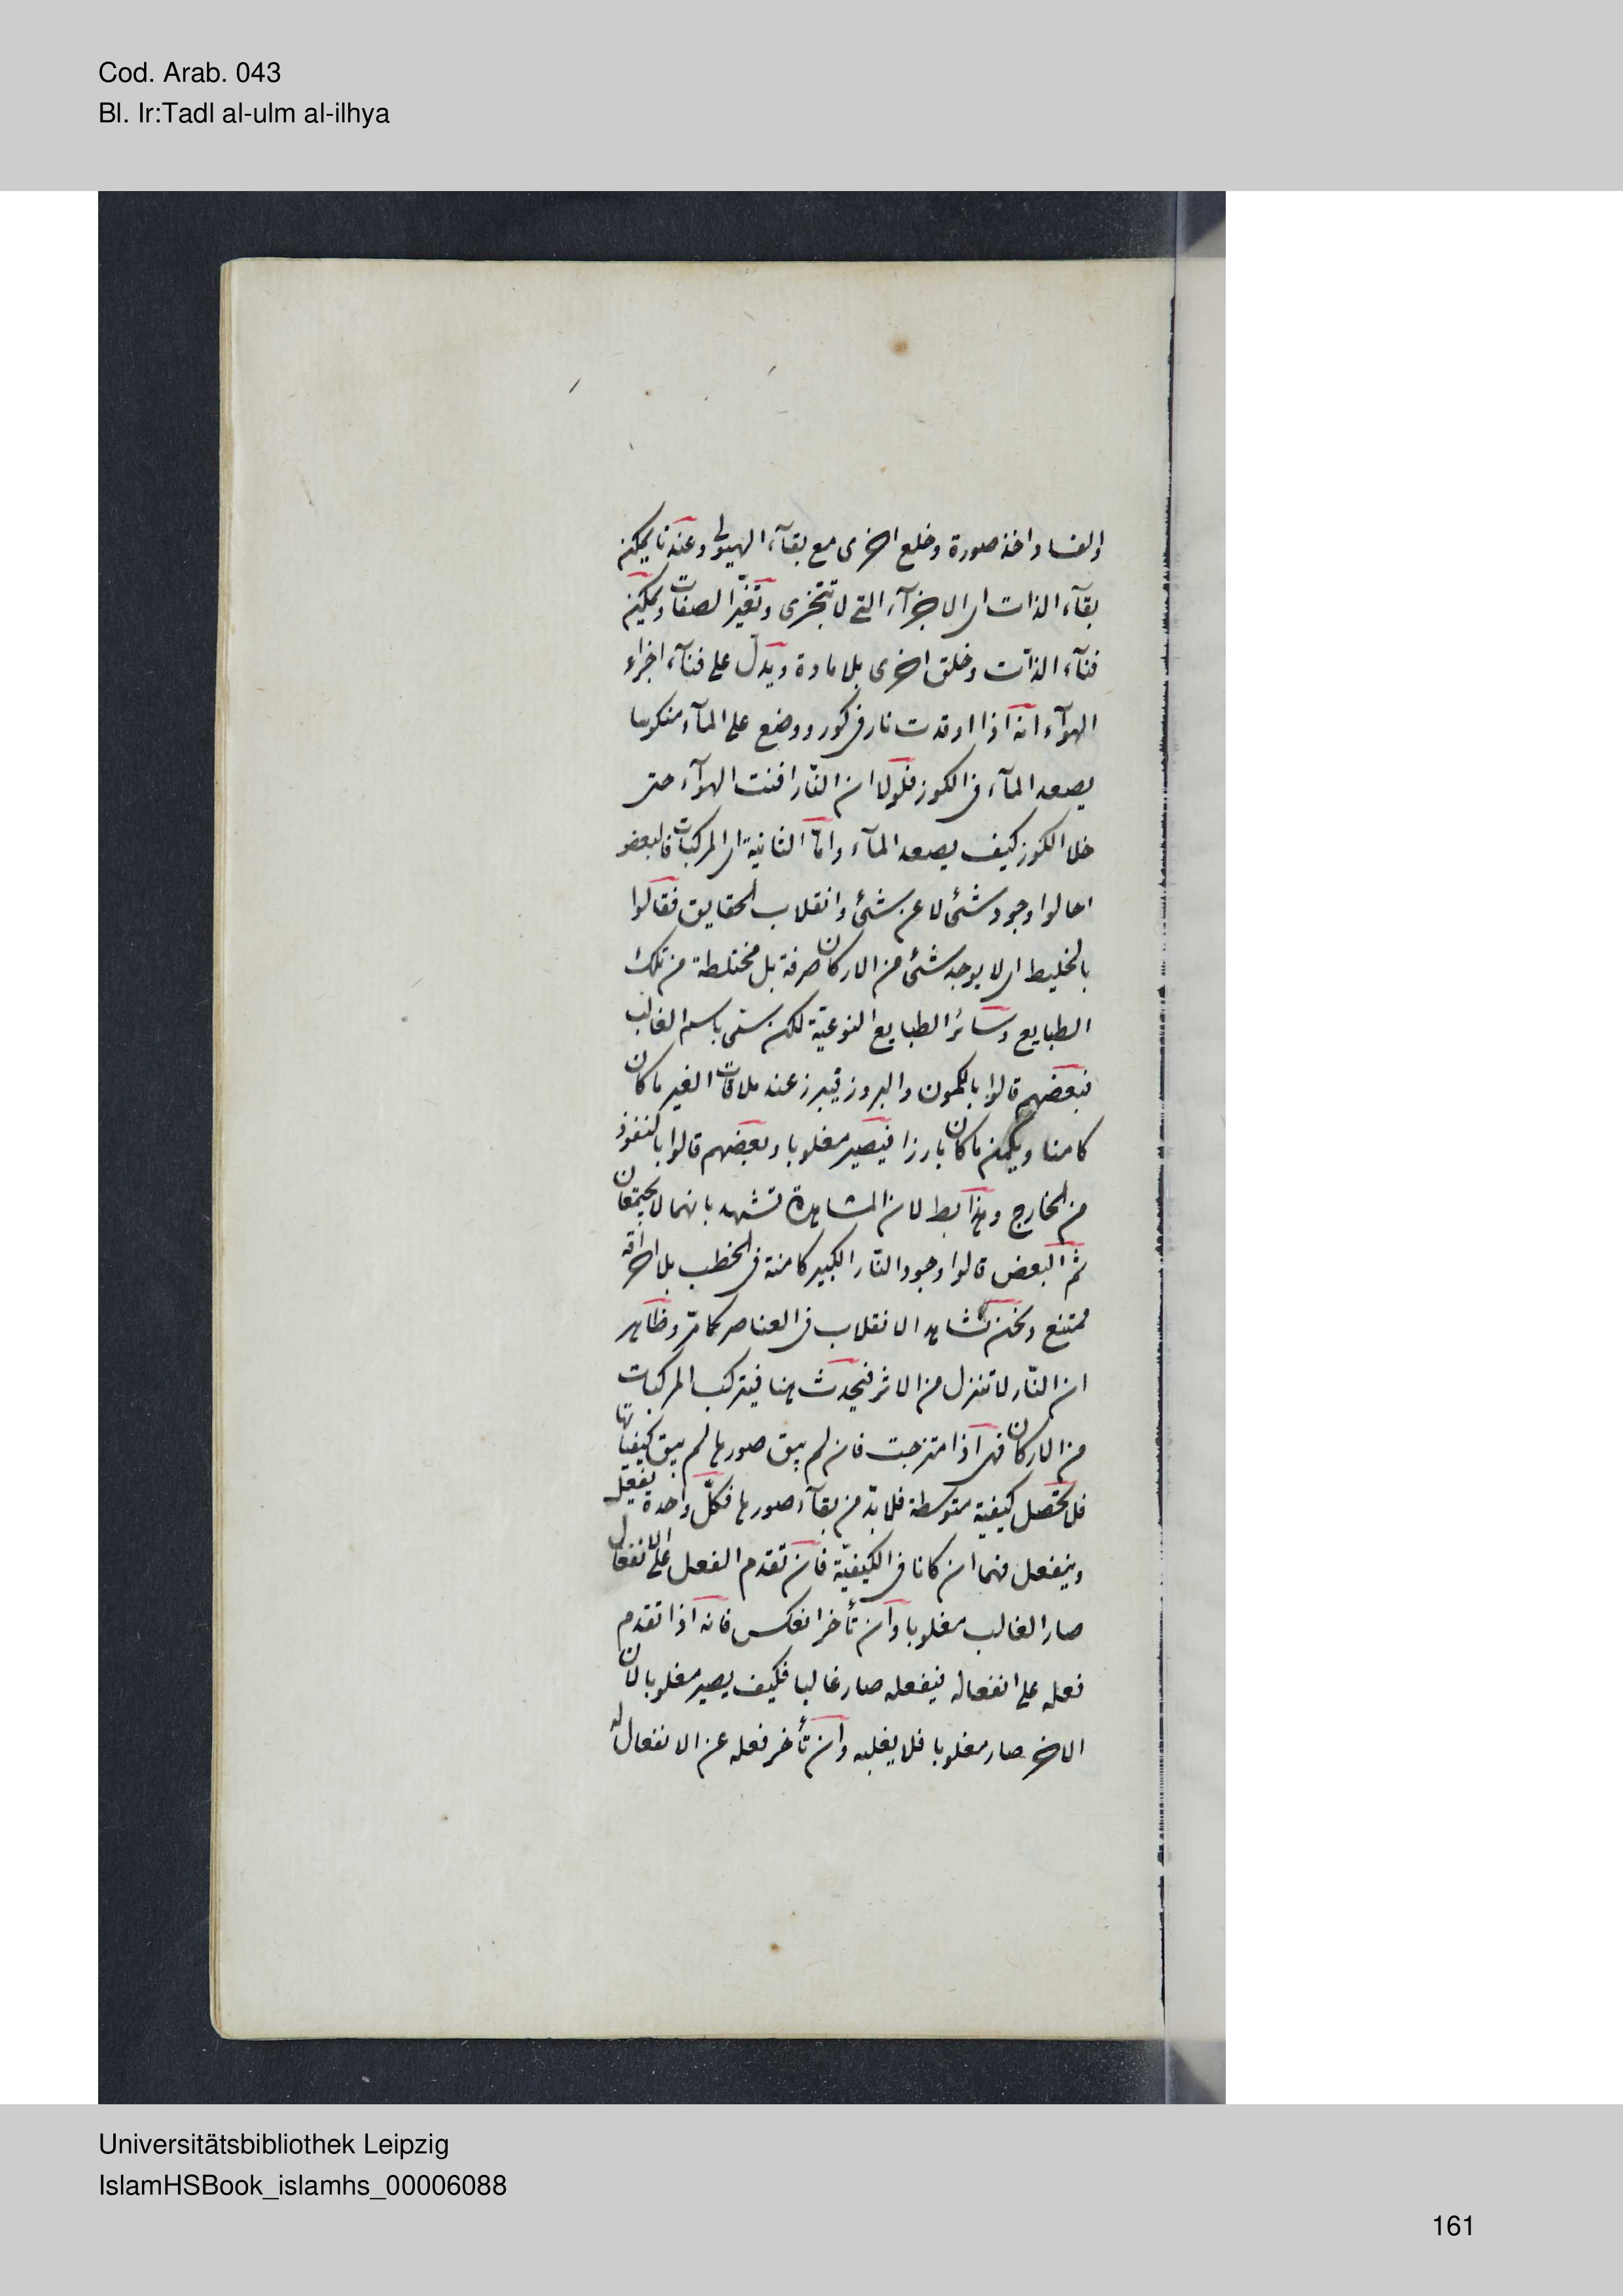 Cod. Arab. 043
Bl. Ir:Tadl al-ulm al-ilhya
والفساد اخذ صورة وخلع اخرى مع بقآء الهيولى وعندنا يمكن
بقآء الذات اى الاجزآء التى لا تتجزى وتغيّر الصفات ويمكن
فنآء الذات وخلق اخرى بلا مادة ويدل على فنآء اجزاء
الهوآء انه اذا اوقدت نار فى كوز ووضع على المآء منكوسا
يصعد المآء فى الكوز فلولا ان النّار افنت الهوآء حتى
خلا الكوز كيف يصعد المآء وامّا الثانية اى المركبات فالبعض
احالوا وجود شئ لا عن شئ وانقلاب الحقايق فقالوا
بالخليط اى لا يوجد شئ من الاركان صرفة بل مختلطة من تلك
الطبايع وسائر الطبايع النوعيّة لكن سمّى باسم الغالب
فبعضهم قالوا بالكمون والبروز فيبرز عند ملاقات الغير ما كان
كامنا ويكمن ما كان بارزا فيصير مغلوبا وبعضهم قالوا بالنفوذ
من الخارج وهذا بط لان المشاهدة تشهد بانهما لا يجتمعان
ثم البعض قالوا وجود النّار الكبير كامنة فى الحطب بلا احراقه
ممتنع ونحن نشاهد الانقلاب فى العناصر كما مرّ وظاهر
ان النّار لا تنزل من الاثر فيحدث هنا فيتركب المركبات
من الاركان فهى اذا امتزجت فان لم يبق صورها لم يبق كيفياتها
فلا تحصل كيفية متوسطة فلا بدّ من بقآء صورها فكلّ واحدة يفعل
وينفعل فهما ان كانا فى الكيفيّة فان تقدم الفعل على الانفعال
صار الغالب مغلوبا وان تأخر انعكس فانه اذا تقدم
فعله على انفعاله فبفعله صار غالبا فكيف يصير مغلوبا لان
الاخر صار مغلوبا فلا يغلبه وان تأخر فعله عن الانفعال
Universitätsbibliothek Leipzig
IslamHSBook_islamhs_00006088
161